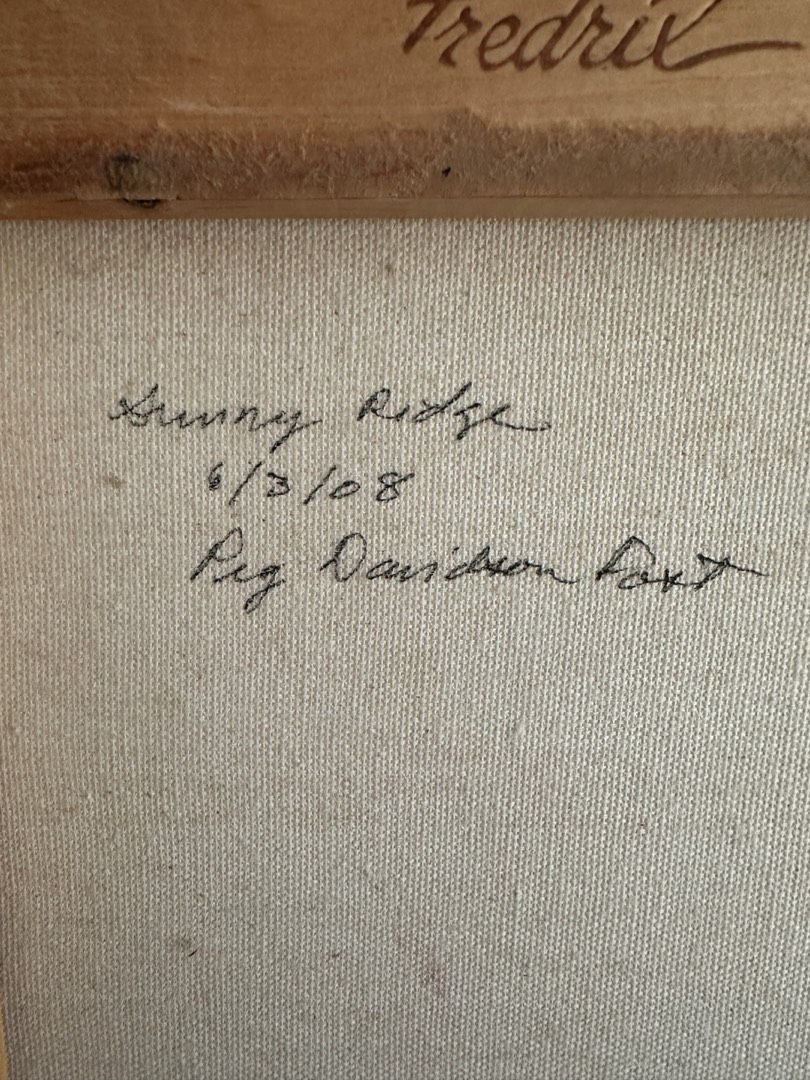 Fredrix
Sunny Ridge
6/3/08
Peg Davidson